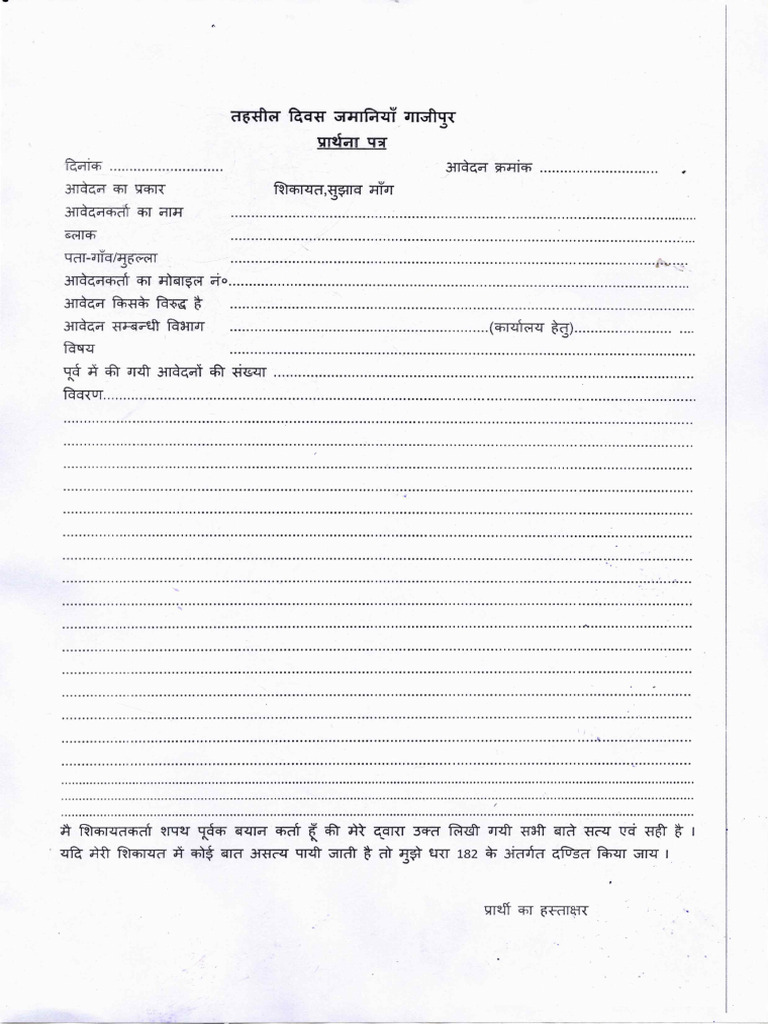 तहसील दिवस जमानियाँ गाजीपुर
प्रार्थना पत्र
दिनांक ............................ आवेदन क्रमांक ..............................
आवेदन का प्रकार शिकायत,सुझाव माँग
आवेदनकर्ता का नाम ....................................................................................
ब्लाक ....................................................................................
पता-गाँव/मुहल्ला ....................................................................................
आवेदनकर्ता का मोबाइल नं०....................................................................................
आवेदन किसके विरुद्ध है ....................................................................................
आवेदन सम्बन्धी विभाग ..................................................................(कार्यालय हेतु)......................... ....
विषय ....................................................................................
पूर्व में की गयी आवेदनों की संख्या ....................................................................................
विवरण....................................................................................
मै शिकायतकर्ता शपथ पूर्वक बयान कर्ता हूँ की मेरे द्वारा उक्त लिखी गयी सभी बाते सत्य एवं सही है ।
यदि मेरी शिकायत में कोई बात असत्य पायी जाती है तो मुझे धरा 182 के अंतर्गत दण्डित किया जाय ।
प्रार्थी का हस्ताक्षर